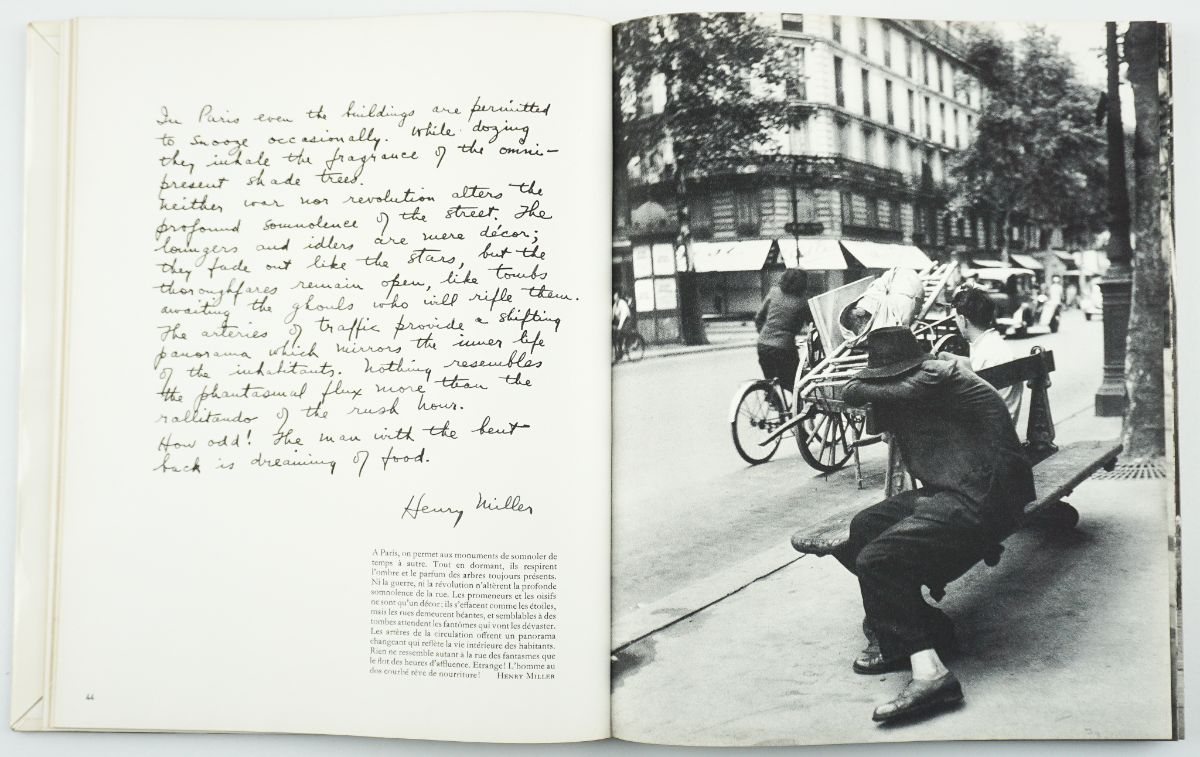 In Paris even the buildings are permitted
to snooze occasionally. While dozing
they inhale the fragrance of the omni-
present shade trees.
Neither war nor revolution alters the
profound somnolence of the street. The
loungers and idlers are mere décor;
they fade out like the stars, but the
thoroughfares remain open, like tombs
awaiting the ghouls who will rifle them.
The arteries of traffic provide a shifting
panorama which mirrors the inner life
of the inhabitants. Nothing resembles
the phantasmal flux more than the
rallitando of the rush hour.
How odd! The man with the bent
back is dreaming of food.
Henry Miller
A Paris, on permet aux monuments de somnoler de
temps à autre. Tout en dormant, ils respirent
l'ombre et le parfum des arbres toujours présents.
Ni la guerre, ni la révolution n'altèrent la profonde
somnolence de la rue. Les promeneurs et les oisifs
ne sont qu'un décor; ils s'effacent comme les étoiles,
mais les rues demeurent béantes, et semblables à des
tombes attendent les fantômes qui vont les dévaster.
Les artères de la circulation offrent un panorama
changeant qui reflète la vie intérieure des habitants.
Rien ne ressemble autant à la rue des fantasmes que
le flot des heures d'affluence. Etrange! L'homme au
dos courbé rêve de nourriture! HENRY MILLER
44